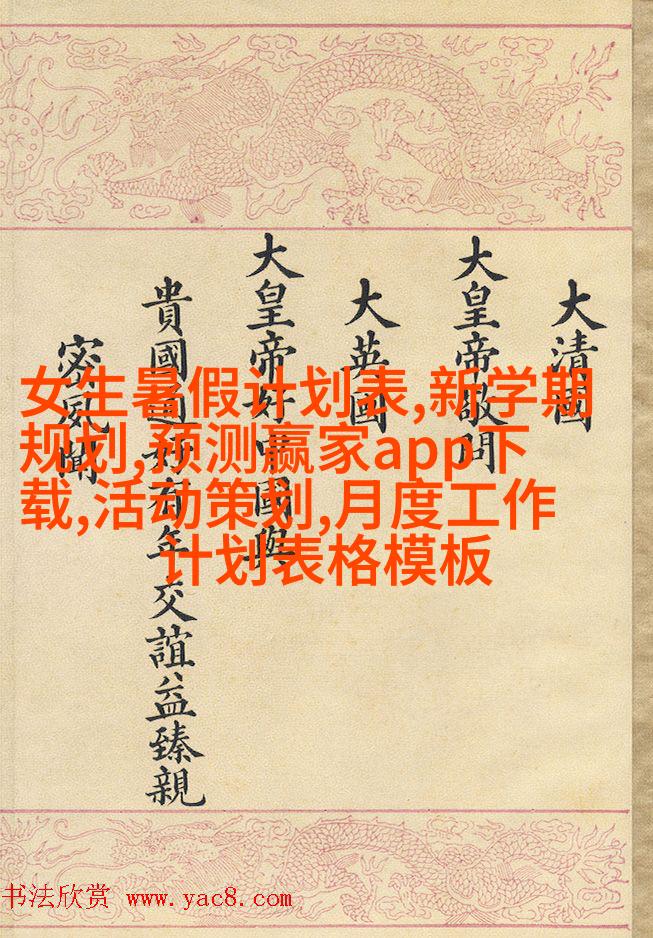 大清國
大皇帝敬問
大英國
大皇帝好中國與
貴國通好有年交誼益臻親
密風聞
女生暑假计划表,新学期
规划,预测赢家app下
载,活动策划,月度工作
计划表格模板
书法欣赏 www.yac8.com